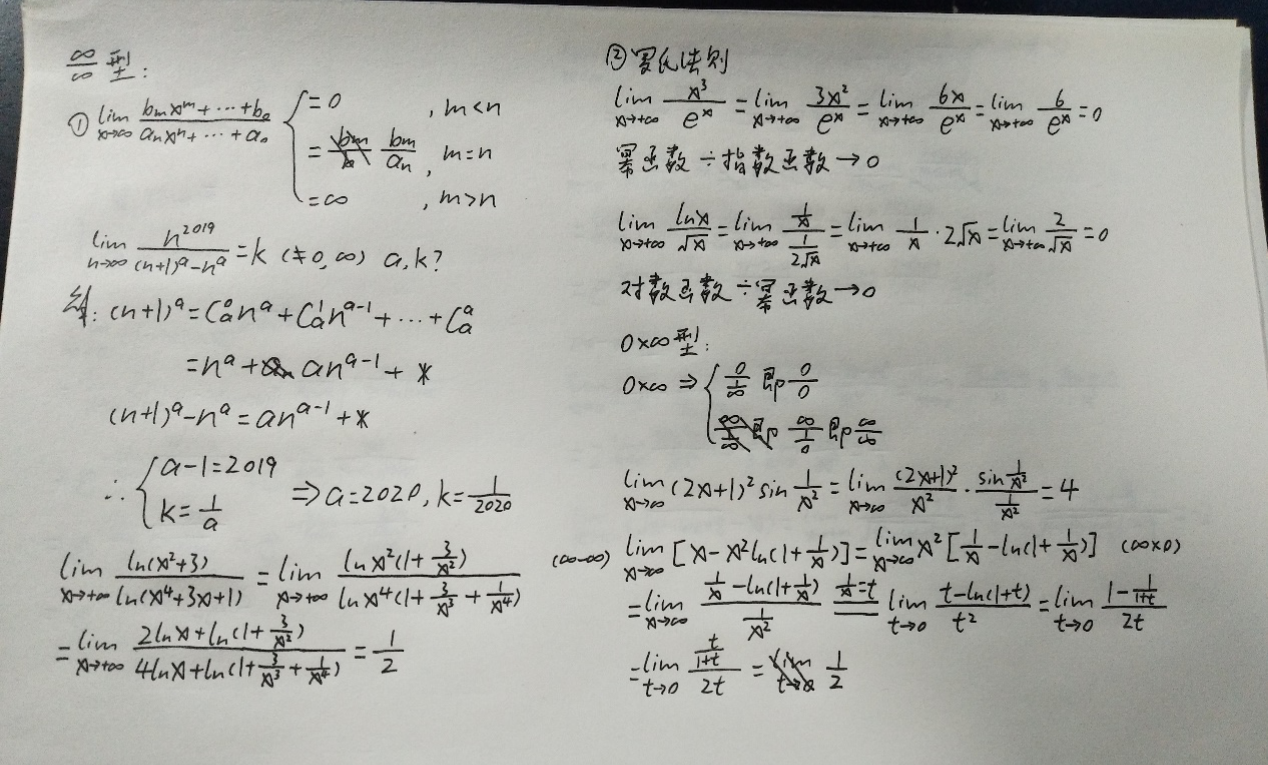 ∞/∞ 型:
① lim x→∞ (bₘxᵐ+⋯+b₀)/(aₙxⁿ+⋯+a₀) { =0 , m<n
= bₘ/aₙ , m=n
=∞ , m>n
lim n→∞ n²⁰¹⁹/((n+1)ᵃ-nᵃ) = k (≠0,∞) a,k?
解: (n+1)ᵃ = C_a^0 nᵃ + C_a^1 nᵃ⁻¹ + ⋯ + C_a^a
= nᵃ + anᵃ⁻¹ + *
(n+1)ᵃ-nᵃ = anᵃ⁻¹ + *
∴ { a-1=2019
k=1/a ⇒ a=2020, k=1/2020
lim x→+∞ ln(x²+3)/ln(x⁴+3x+1) = lim x→+∞ lnx²(1+3/x²)/lnx⁴(1+3/x³+1/x⁴)
= lim x→+∞ (2lnx+ln(1+3/x²))/(4lnx+ln(1+3/x³+1/x⁴)) = 1/2
② 罗氏法则
lim x→+∞ x³/eˣ = lim x→+∞ 3x²/eˣ = lim x→+∞ 6x/eˣ = lim x→+∞ 6/eˣ = 0
幂函数÷指数函数→0
lim x→+∞ lnx/√x = lim x→+∞ (1/x)/(1/(2√x)) = lim x→+∞ 1/x·2√x = lim x→+∞ 2/√x = 0
对数函数÷幂函数→0
0×∞型:
0×∞ ⇒ { 0/(1/∞) 即 0/0
∞/(1/0) 即 ∞/∞
lim x→∞ (2x+1)² sin 1/x² = lim x→∞ (2x+1)²/x² · (sin 1/x²)/(1/x²) = 4
(∞-∞) lim x→∞ [x-x²ln(1+1/x)] = lim x→∞ x²[1/x-ln(1+1/x)] (∞×0)
= lim x→∞ (1/x-ln(1+1/x))/(1/x²) 1/x=t lim t→0 (t-ln(1+t))/t² = lim t→0 (1-1/(1+t))/2t
= lim t→0 (t/(1+t))/2t = 1/2